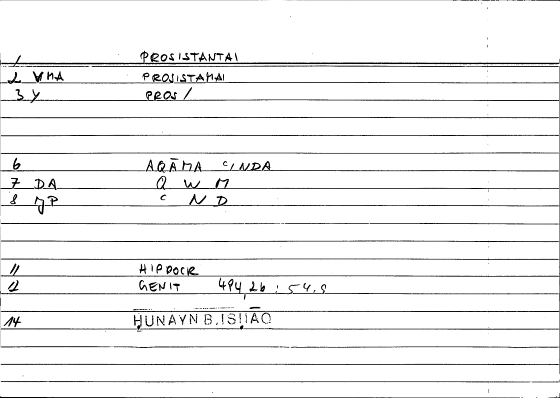 1 PROSISTANTAI
2 VMA PROSISTAMAI
3 Y PROS /
6 AQĀMA ʿINDA
7 DA Q W M
8 JP ʿ N D
11 HIPPOCR
12 GENIT 494,26 : 54.9
14 ḤUNAYN B. ISḤĀQ